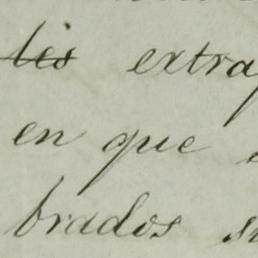 les extra
en que
brados